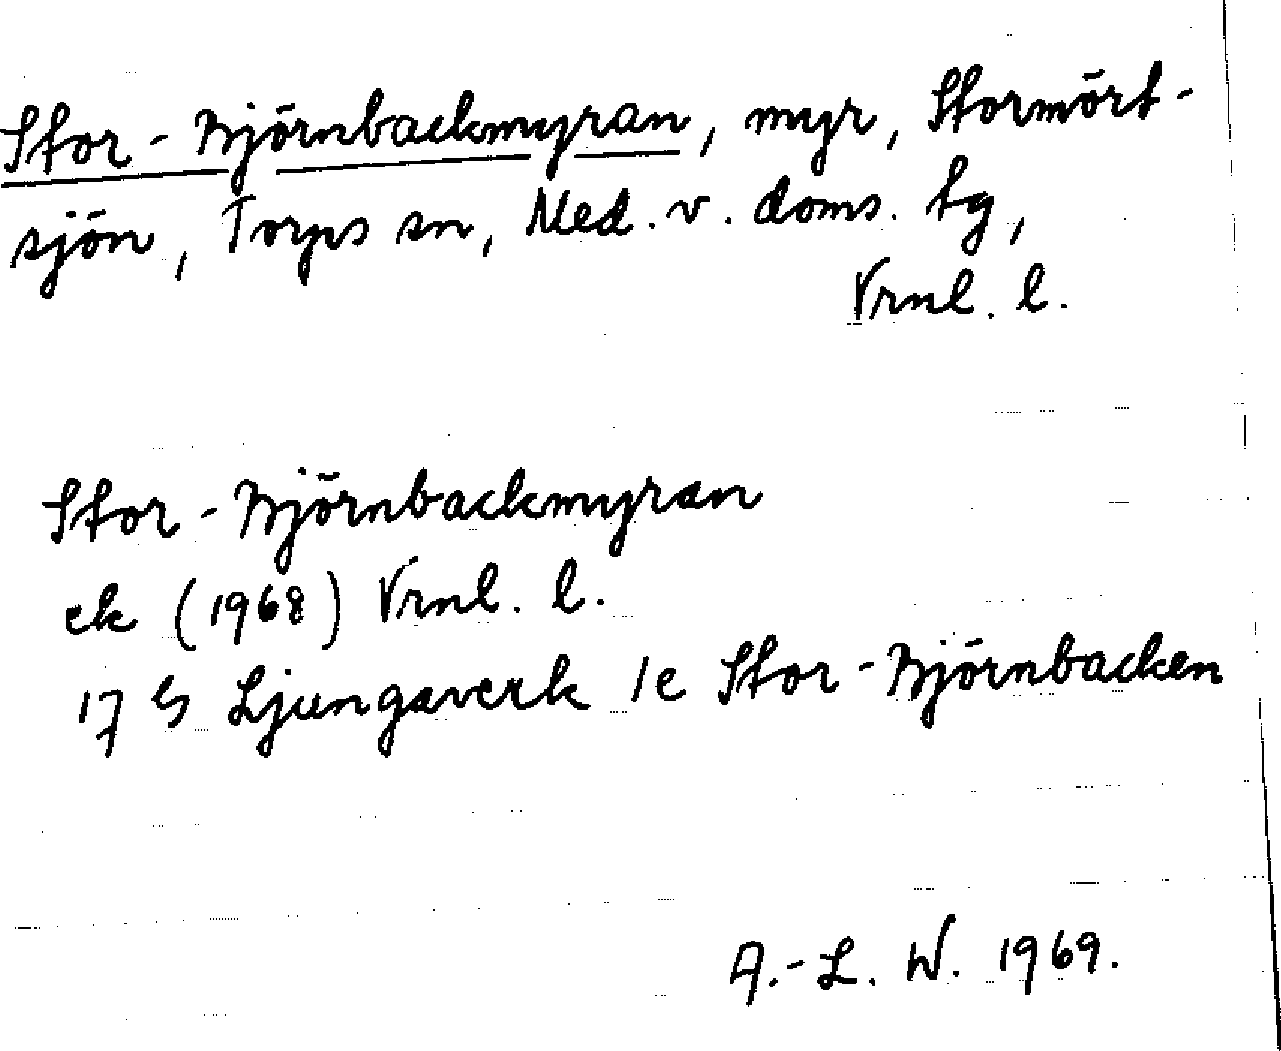 Stor-Björnbackmyran, myr, Stormört-
sjön, Torps sn, Med. v. doms. tg,
Vrnl. l.
Stor-Björnbackmyran
ek (1968) Vrnl. l.
17 G Ljungaverk 1e Stor-Björnbacken
A.-L. W. 1969.